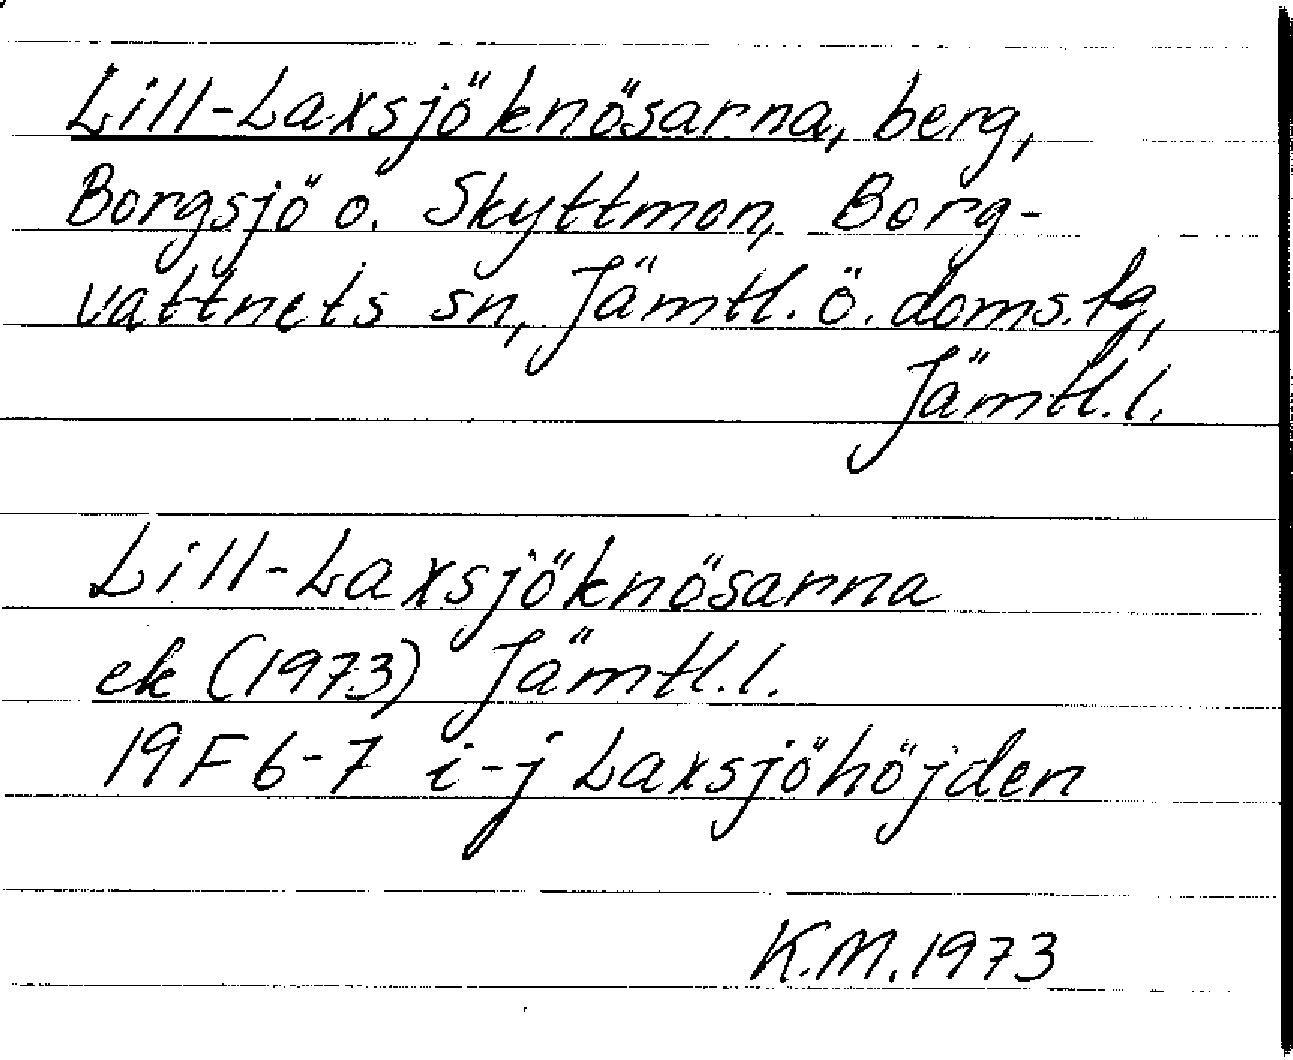 Lill-Laxsjöknösarna, berg,
Borgsjö o. Skyttmon, Borg-
vattnets sn, Jämtl. ö. doms. lg,
Jämtl. l.
Lill-Laxsjöknösarna
ek (1973) Jämtl. l.
19F 6-7 i-j Laxsjöhöjden
K.M. 1973